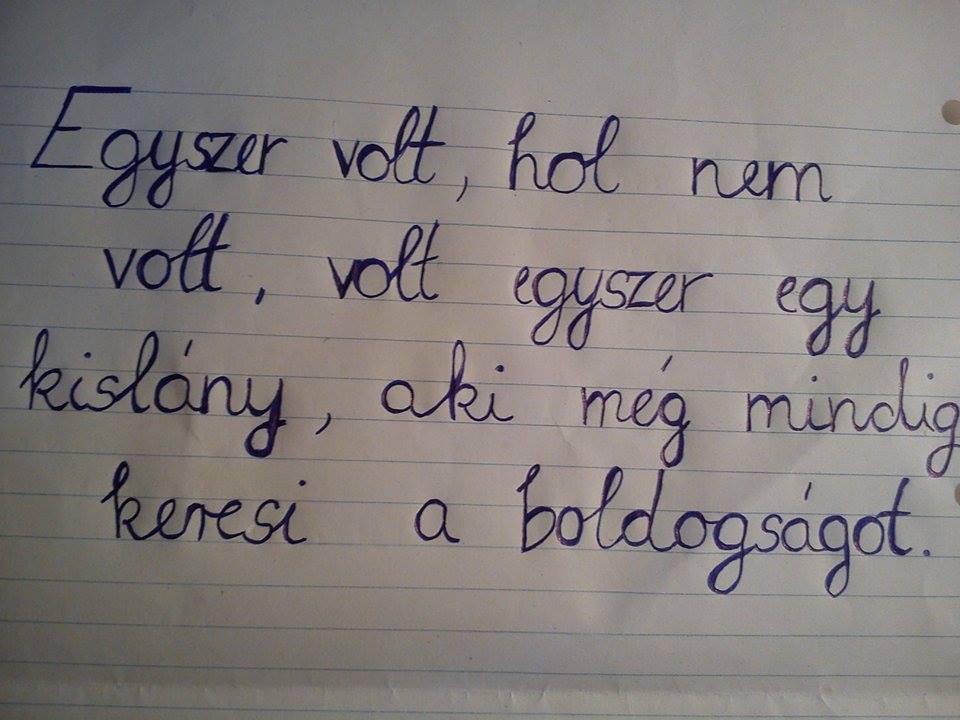 Egyszer volt, hol nem
volt, volt egyszer egy
kislány, aki még mindig
keresi a boldogságot.